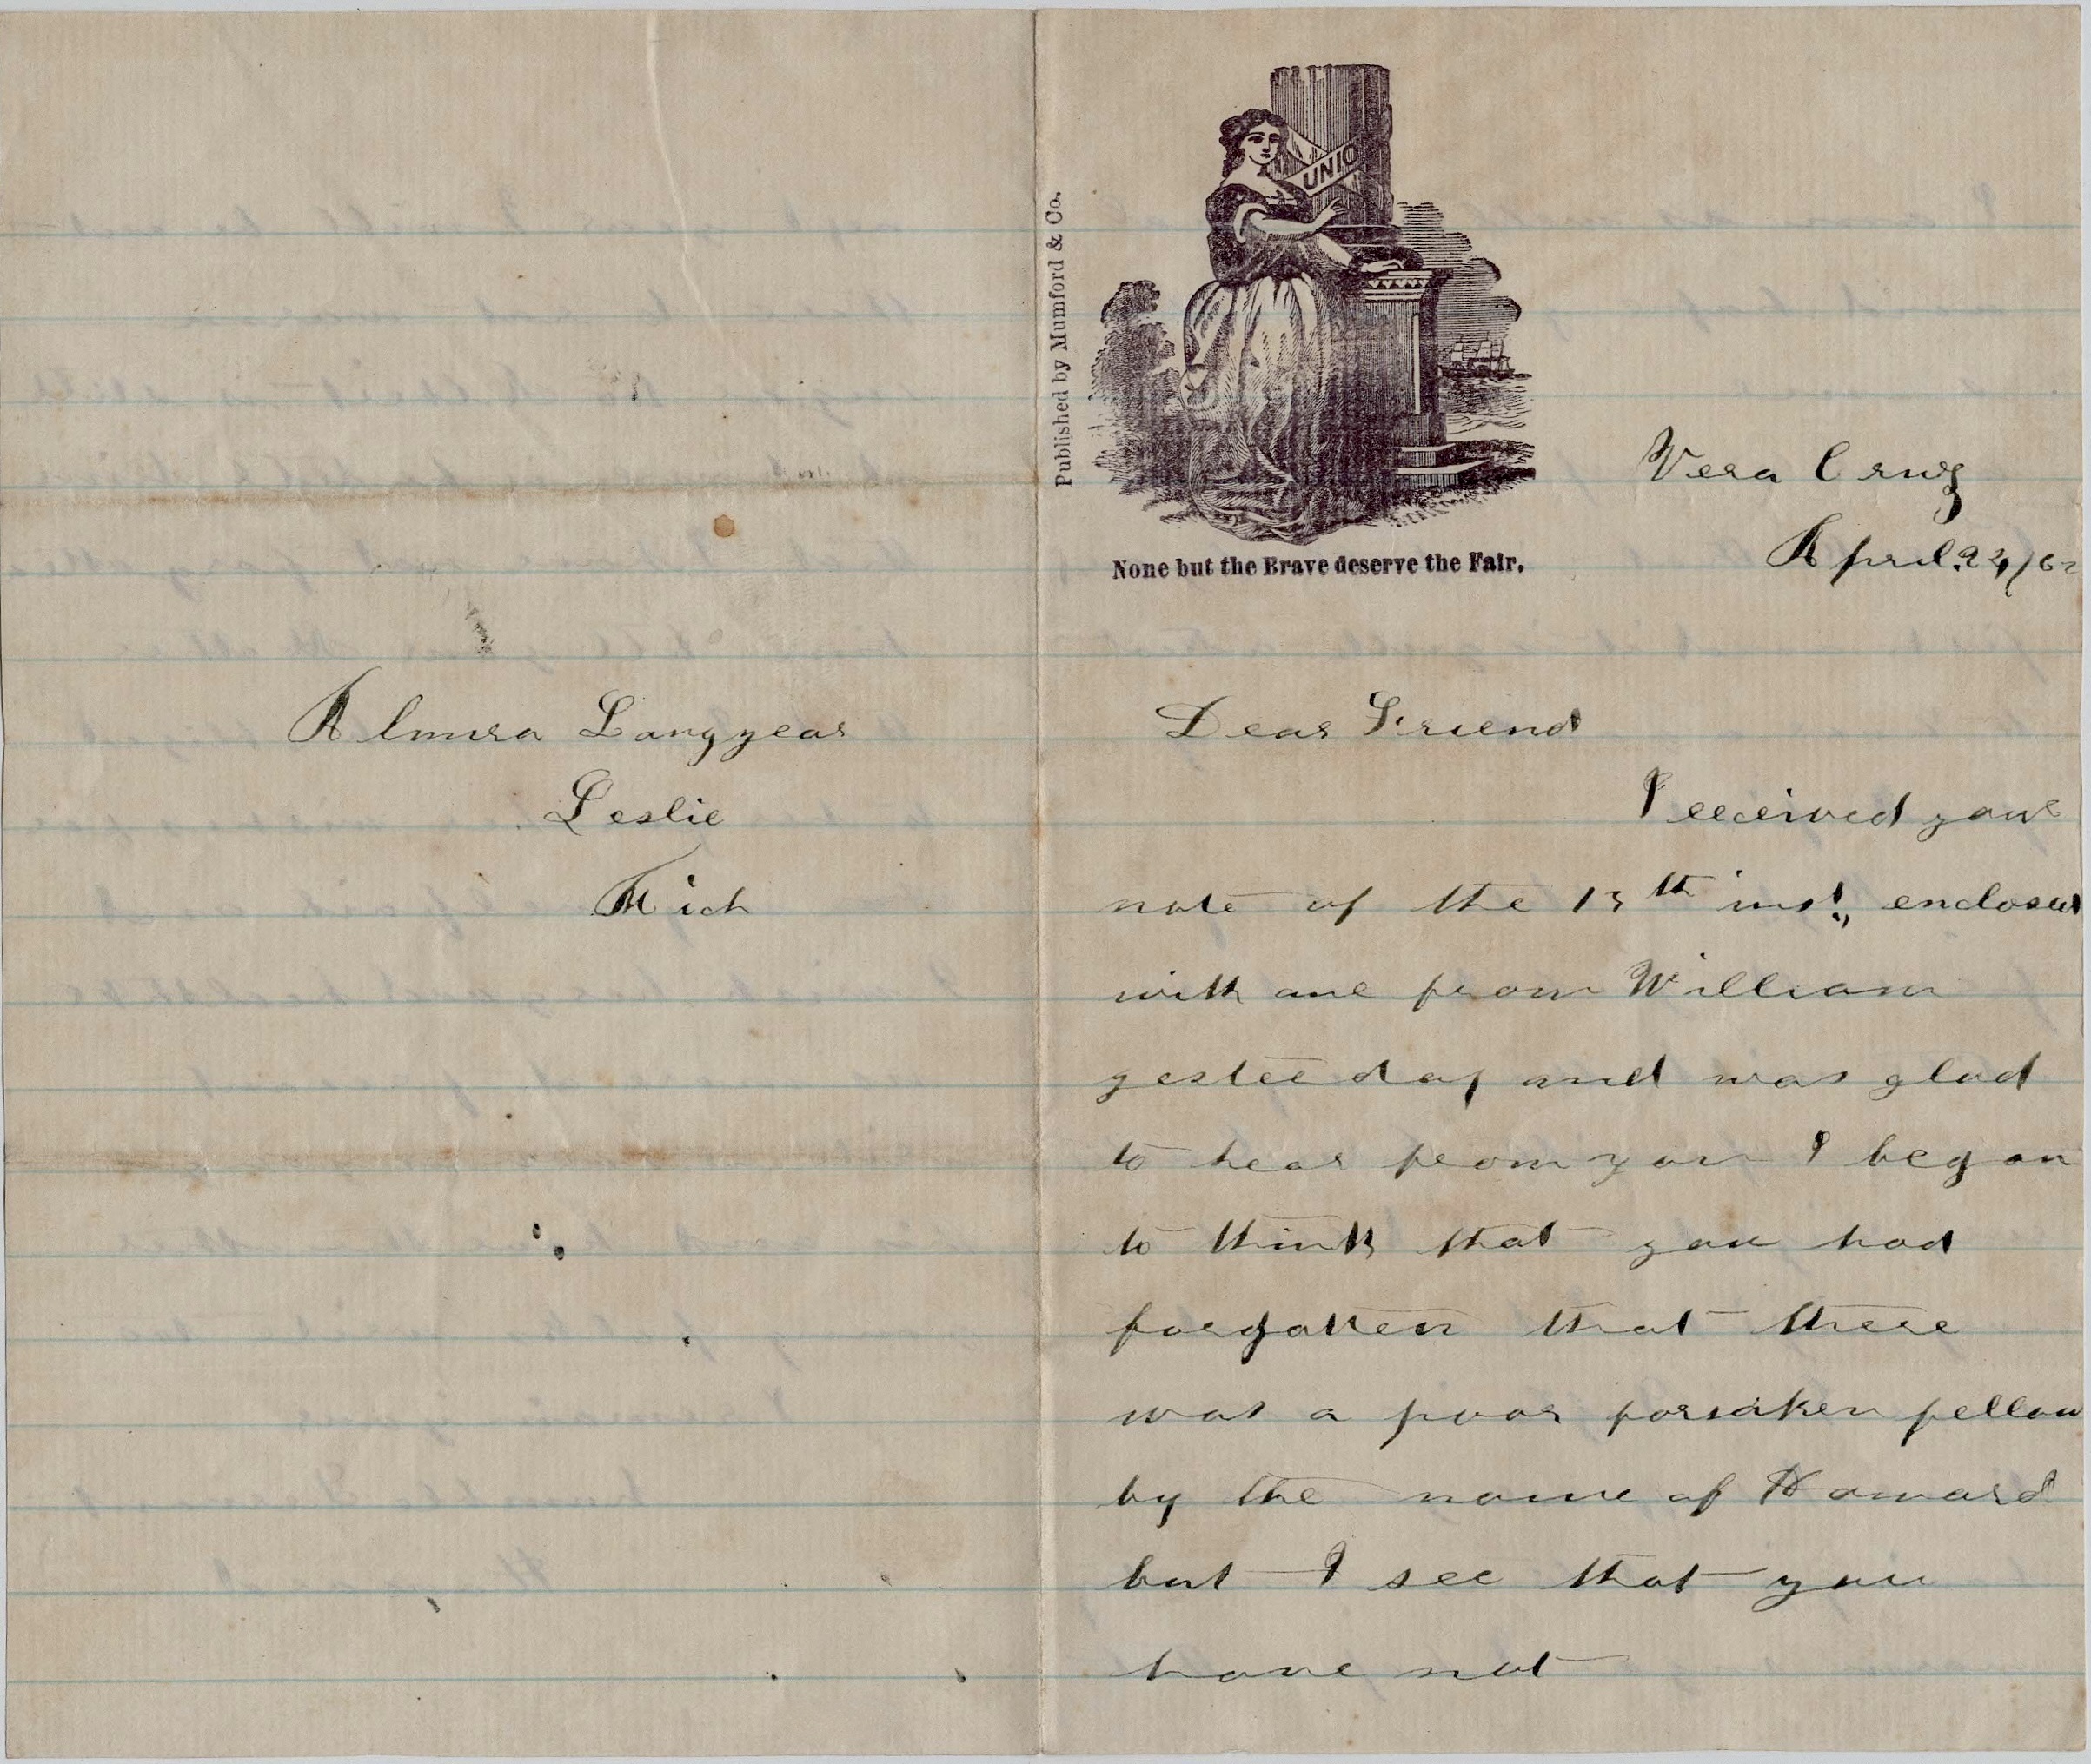 Almira Longyear
Leslie
Mich
Published by Mumford & Co.
UNIO
None but the Brave deserve the Fair.
Vera Cruz
April. 24/62
Dear Friend
I received your
note of the 15th inst., enclosed
with one from William
yesterday and was glad
to hear from you I began
to think that you had
forgotten that there
was a poor forsaken fellow
by the name of Howard
but I see that you
have not